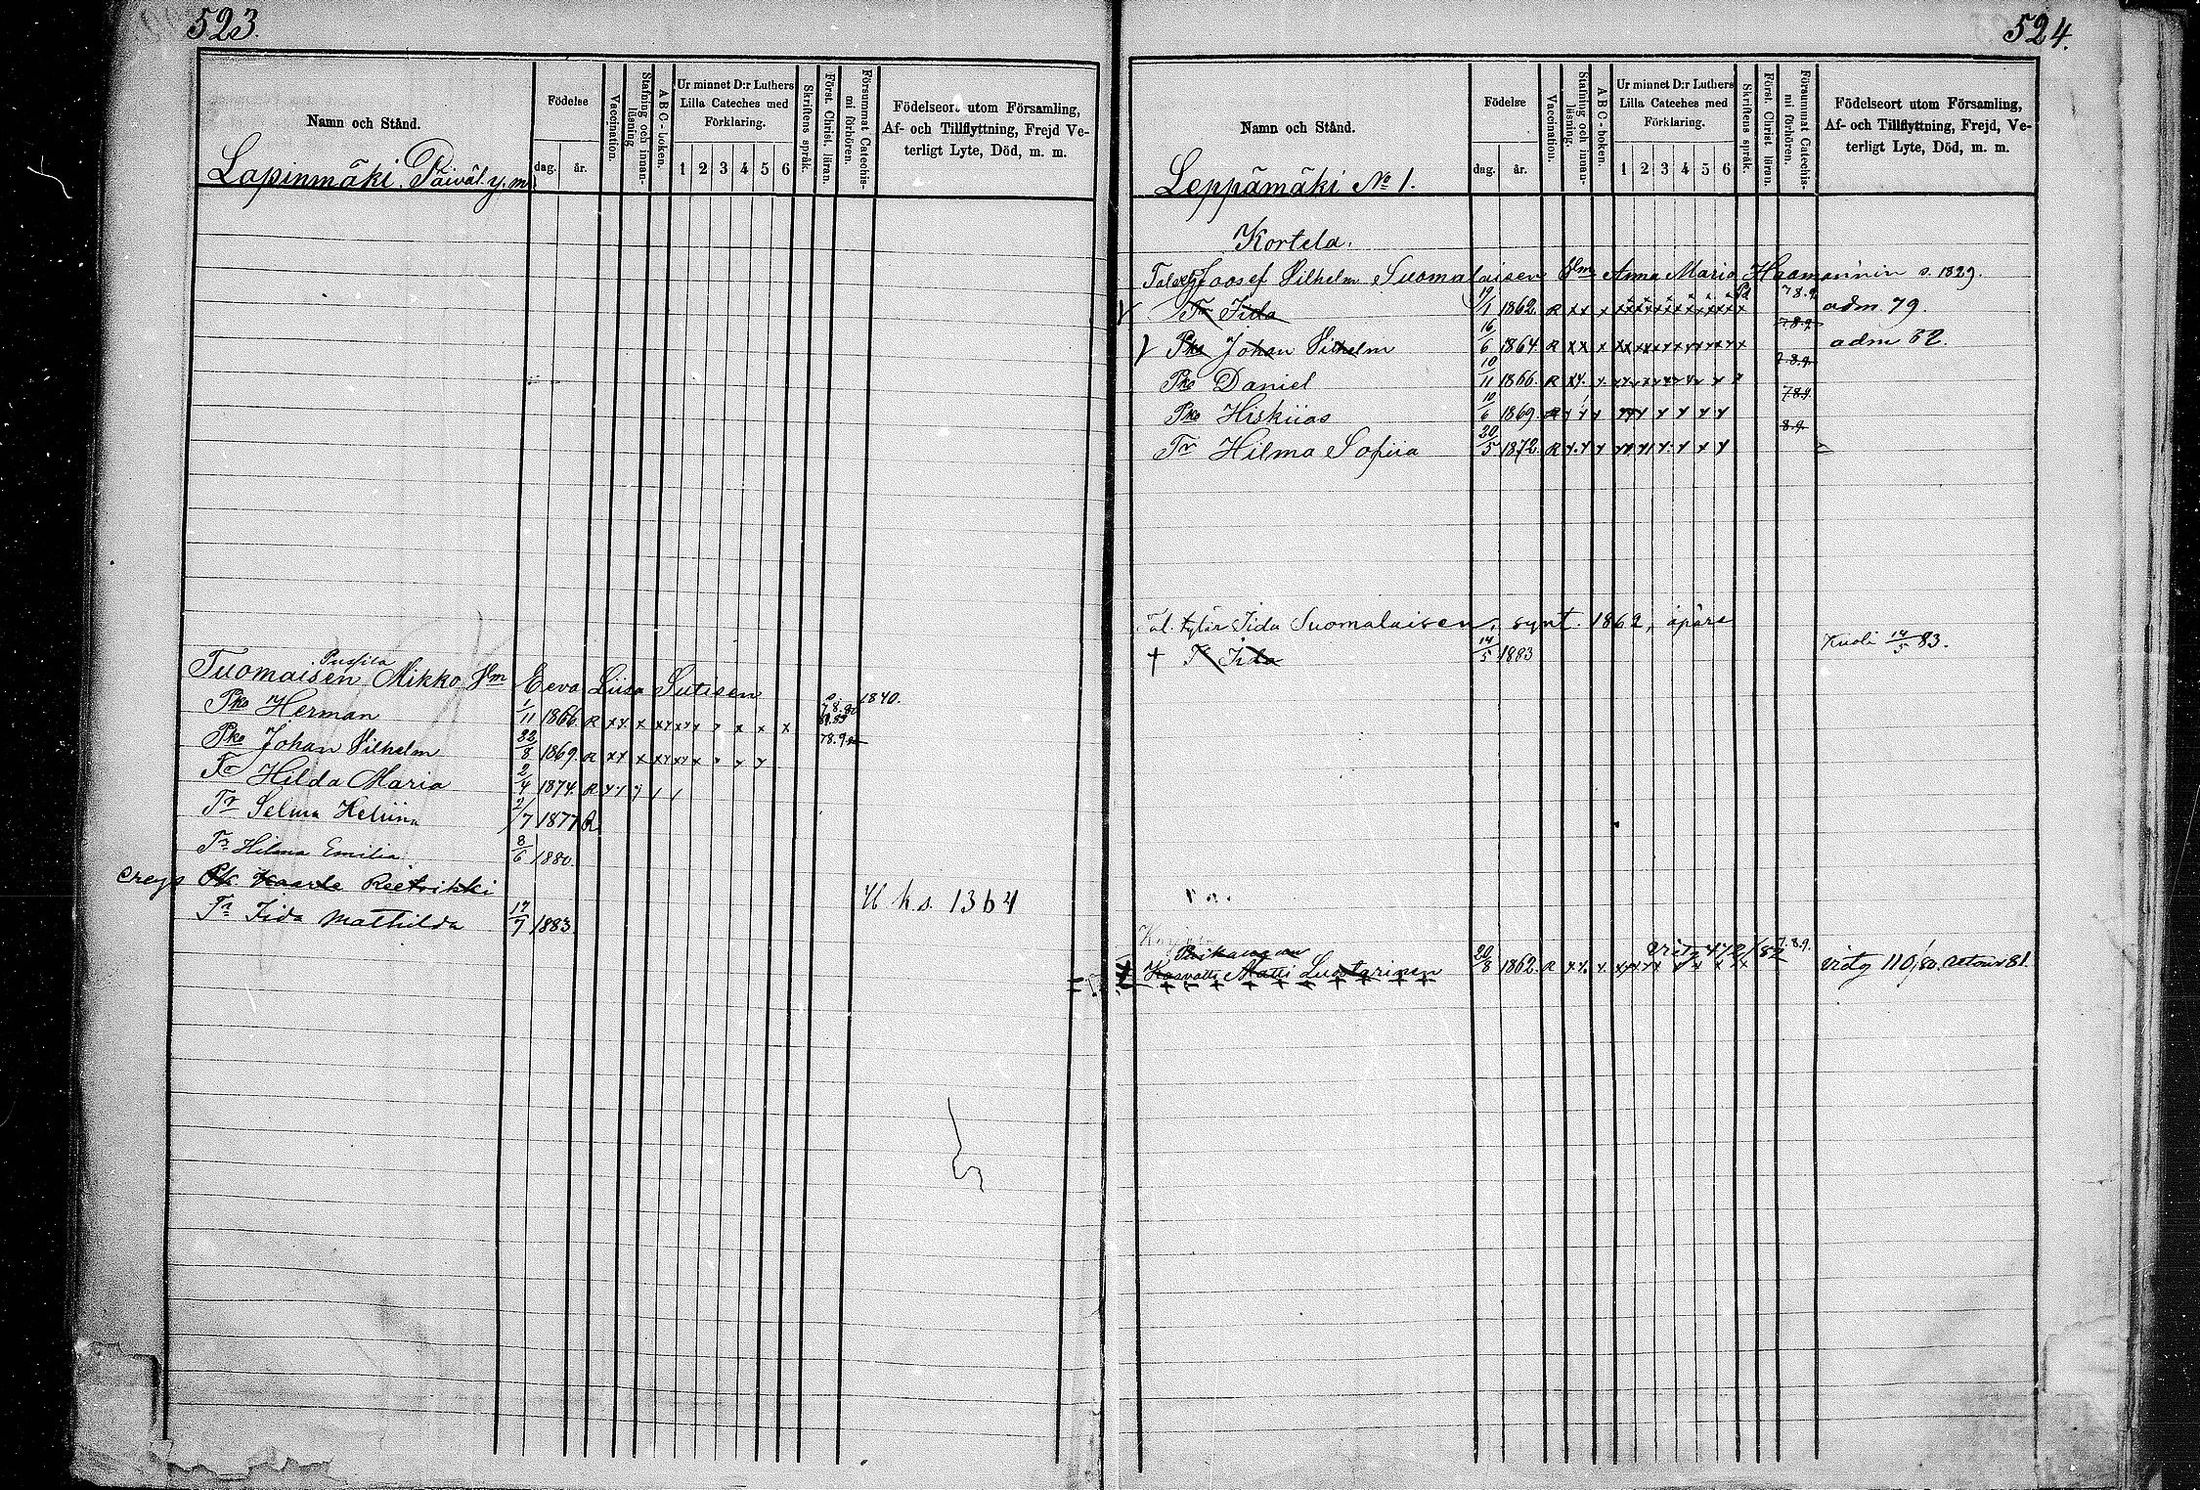 523.
Namn och Stånd.
Födelse
dag. år.
Vaccination.
Stafning och innanläsning
A B C-boken.
Ur minnet D:r Luthers Lilla Cateches med Förklaring.
1 2 3 4 5 6
Skriftens språk.
Först. Christ. läran.
Försummat Catechismi förhören.
Födelseort utom Församling,
Af- och Tillflyttning, Frejd Ve-
terligt Lyte, Död, m. m.
Lapinmäki. Päiväl. y. m.
Tuomaisen Mikko Vm Eeva Liisa Sutisen 1840.
Pka Herman 1/11 1866. R
Pka Johan Vilhelm 22/8 1869. R
Tr Hilda Maria 2/4 1874. R
Tr Selma 2/7 1877 R
Tr Hilma Emilia 8/6 1880.
Pk Kaarle Reetrikki
Tr Iida Mathilda 17/7 1883.
1364
524.
Namn och Stånd.
Födelse
dag. år.
Vaccination.
Stafning och innanläsning.
A B C-boken.
Ur minnet D:r Luthers Lilla Cateches med Förklaring.
1 2 3 4 5 6
Skriftens språk.
Först. Christ. läran.
Försummat Catechismi förhören.
Födelseort utom Församling,
Af- och Tillflyttning, Frejd, Ve-
terligt Lyte, Död, m. m.
Leppämäki No 1.
Kortela.
Joosef Vilhelm Suomalaisen Vm Anna Maria s. 1829.
Tr Iida 19/1 1862. R 78.9. adm. 79.
Pka Johan Vilhelm 16/6 1864 R 78.9. adm 82.
Pka Daniel 10/11 1866. R 7.8.9.
Pka Hiskiias 10/6 1869. R 789.
Tr Hilma Sofiia 20/5 1872. R 8.9.
Tal. tytär Iida Suomalaisen, synt. 1862, äpärä
† Tr Iida 14/5 1883 Kuoli 14/5 83.
Kasvatti Matti Luostarinen 20/8 1862. R 7.8.9. 110/80. retour 81.